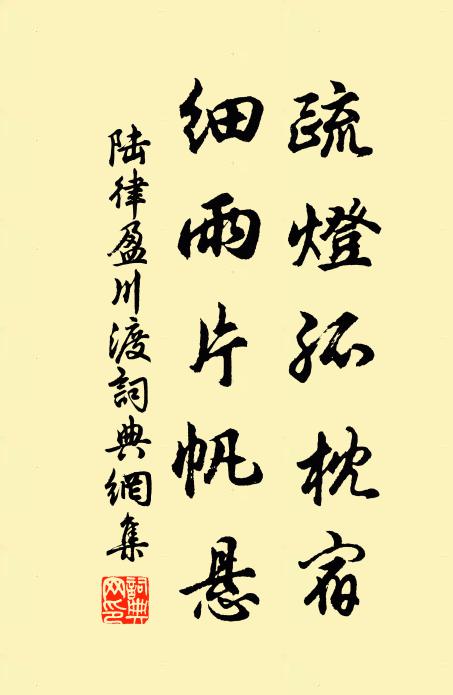 疏燈孤枕宿
細雨片帆懸
陆律盈川渡詞典網集
詞典網印